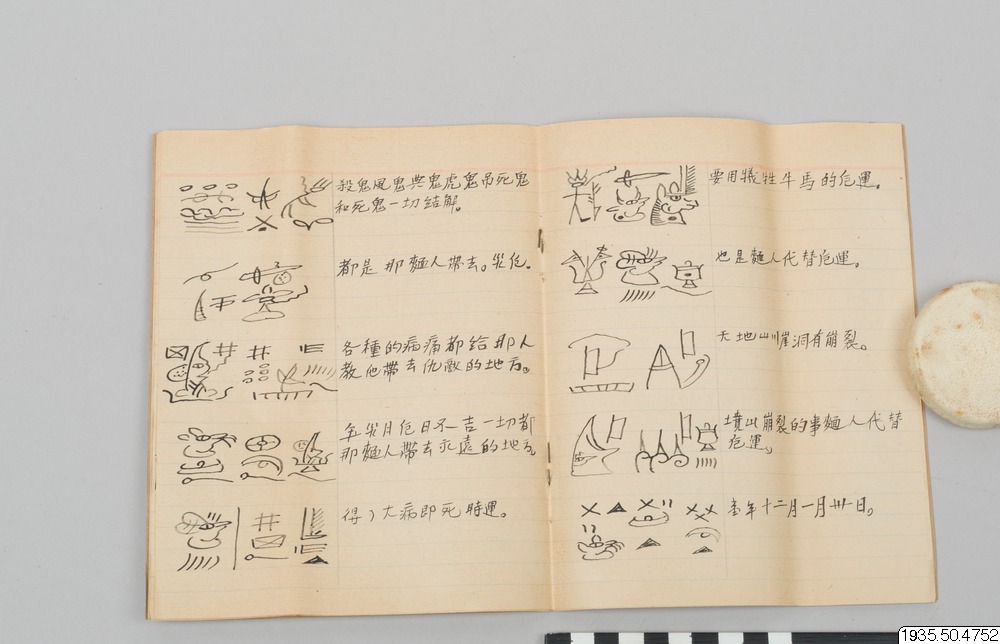 殺鬼風鬼與鬼虎鬼吊死鬼
和死鬼一切結解。
都是那麵人帶去。災危。
各種的病痛都給那人
教他帶去仇敵的地方。
年災月危日不吉一切都
那麵人帶去永遠的地方。
得了大病即死時運。
要用犧牲牛馬的危運。
也是麵人代替危運。
天地山川崖洞有崩裂。
墳山崩裂的事麵人代替
危運。
年十二月一月卅日。
1935.50.4752